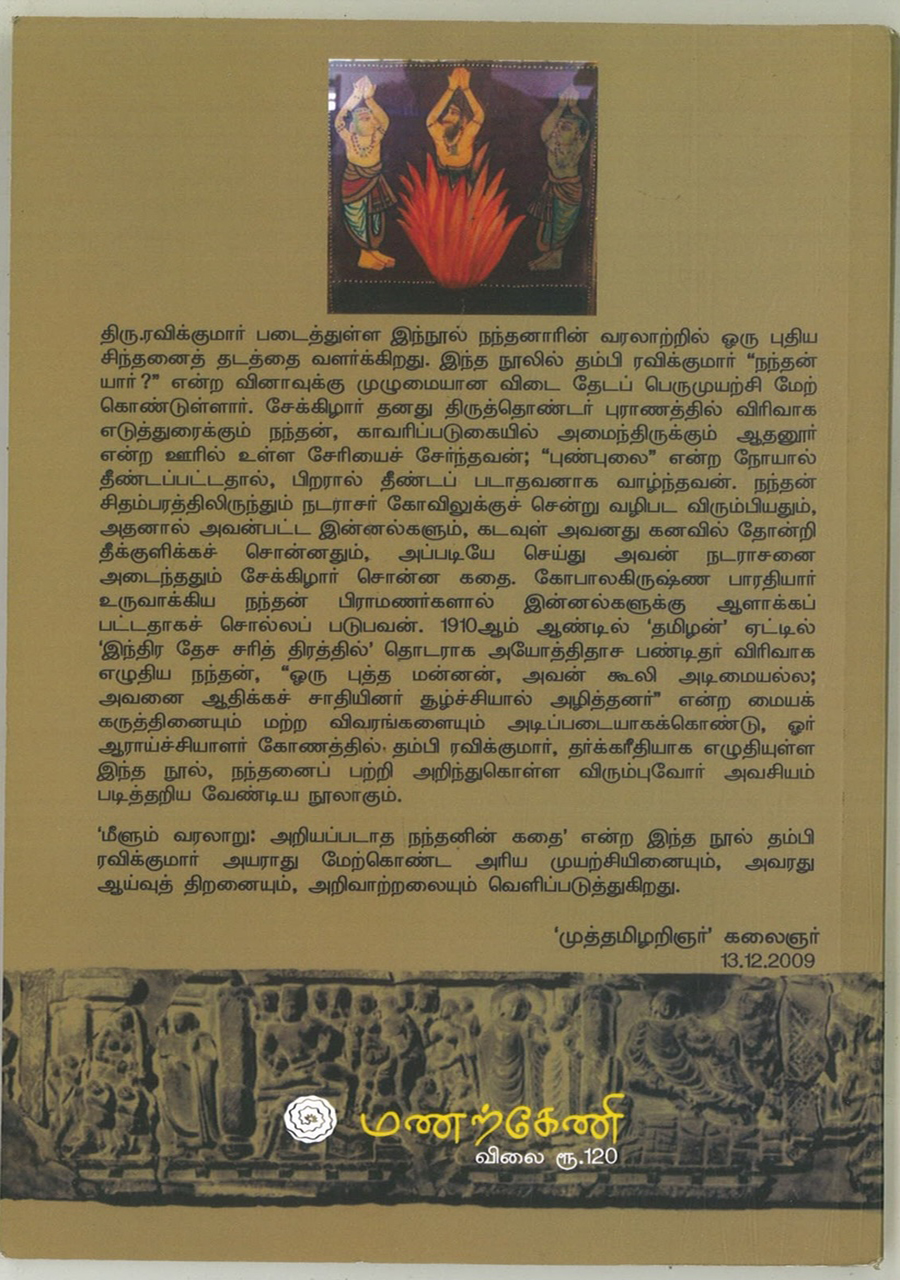 திரு.ரவிக்குமார் படைத்துள்ள இந்நூல் நந்தனாரின் வரலாற்றில் ஒரு புதிய
சிந்தனைத் தடத்தை வளர்க்கிறது. இந்த நூலில் தம்பி ரவிக்குமார் “நந்தன்
யார்?” என்ற வினாவுக்கு முழுமையான விடை தேடப் பெருமுயற்சி மேற்
கொண்டுள்ளார். சேக்கிழார் தனது திருத்தொண்டர் புராணத்தில் விரிவாக
எடுத்துரைக்கும் நந்தன், காவரிப்படுகையில் அமைந்திருக்கும் ஆதனூர்
என்ற ஊரில் உள்ள சேரியைச் சேர்ந்தவன்; “புண்புலை” என்ற நோயால்
தீண்டப்பட்டதால், பிறரால் தீண்டப் படாதவனாக வாழ்ந்தவன். நந்தன்
சிதம்பரத்திலிருந்தும் நடராசர் கோவிலுக்குச் சென்று வழிபட விரும்பியதும்,
அதனால் அவன்பட்ட இன்னல்களும், கடவுள் அவனது கனவில் தோன்றி
தீக்குளிக்கச் சொன்னதும், அப்படியே செய்து அவன் நடராசனை
அடைந்ததும் சேக்கிழார் சொன்ன கதை. கோபாலகிருஷ்ண பாரதியார்
உருவாக்கிய நந்தன் பிராமணர்களால் இன்னல்களுக்கு ஆளாக்கப்
பட்டதாகச் சொல்லப் படுபவன். 1910ஆம் ஆண்டில் ‘தமிழன்’ ஏட்டில்
‘இந்திர தேச சரித் திரத்தில்’ தொடராக அயோத்திதாச பண்டிதர் விரிவாக
எழுதிய நந்தன், “ஒரு புத்த மன்னன், அவன் கூலி அடிமையல்ல;
அவனை ஆதிக்கச் சாதியினர் சூழ்ச்சியால் அழித்தனர்” என்ற மையக்
கருத்தினையும் மற்ற விவரங்களையும் அடிப்படையாகக்கொண்டு, ஓர்
ஆராய்ச்சியாளர் கோணத்தில் தம்பி ரவிக்குமார், தர்க்கரீதியாக எழுதியுள்ள
இந்த நூல், நந்தனைப் பற்றி அறிந்துகொள்ள விரும்புவோர் அவசியம்
படித்தறிய வேண்டிய நூலாகும்.
‘மீளும் வரலாறு: அறியப்படாத நந்தனின் கதை’ என்ற இந்த நூல் தம்பி
ரவிக்குமார் அயராது மேற்கொண்ட அரிய முயற்சியினையும், அவரது
ஆய்வுத் திறனையும், அறிவாற்றலையும் வெளிப்படுத்துகிறது.
‘முத்தமிழறிஞர்’ கலைஞர்
13.12.2009
மணற்கேணி
விலை ரூ.120